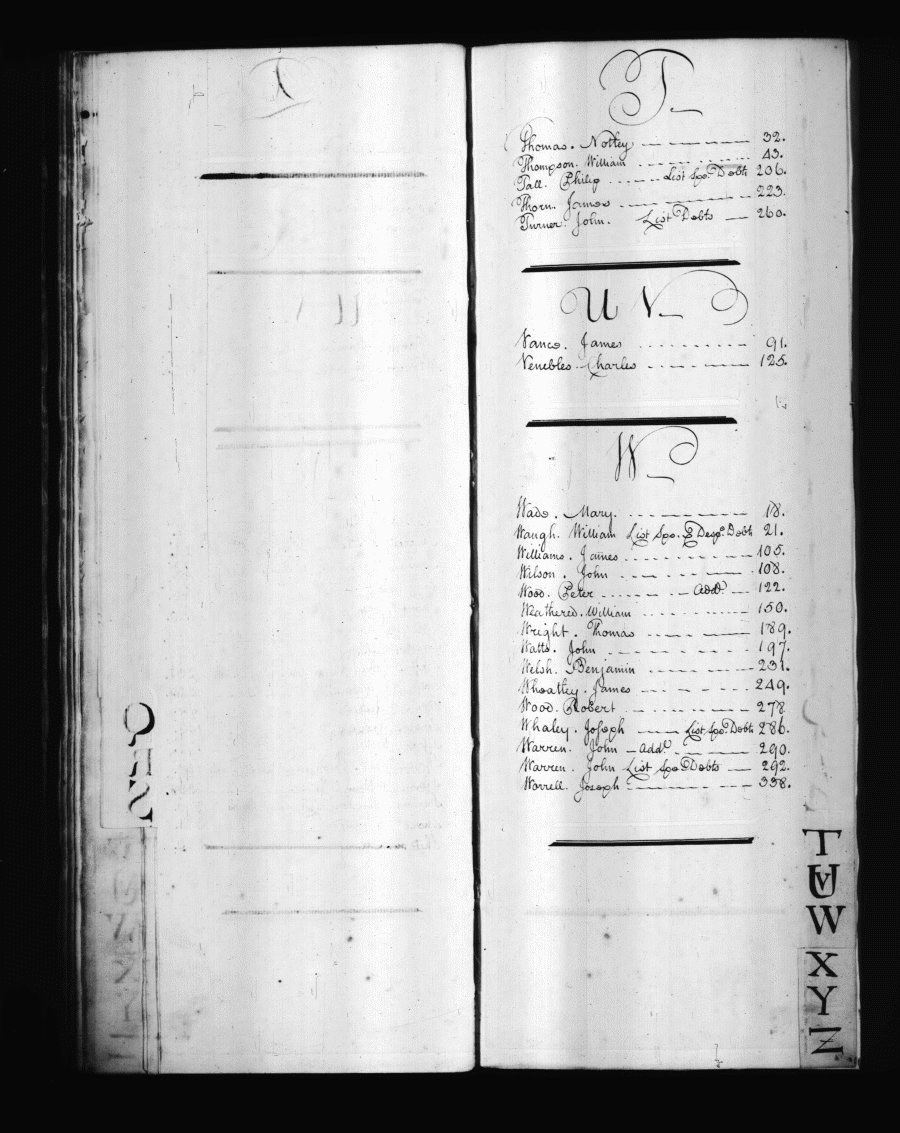 T
Thomas. Notley 32.
Thompson. William 43.
Tall. Philip List Spe. Debts 206.
Thorn. James 223.
Turner. John. List Debts 260.
U V
Vance. James 91.
Venebles. Charles 125.
W
Wade. Mary. 18.
Waugh. William List Spe. & Desp. Debts 21.
Williams. James 105.
Wilson. John 108.
Wood. Peter Addl. 122.
Weathered. William 150.
Wright. Thomas 189.
Watts. John 197.
Welsh. Benjamin 231.
Wheatley. James 249.
Wood. Robert 278
Whaley. Joseph List Spe. Debts 286.
Warren. John Addl. 290.
Warren. John List Spe. Debts 292.
Worrell. Joseph 338.
T
UV
W
X
Y
Z